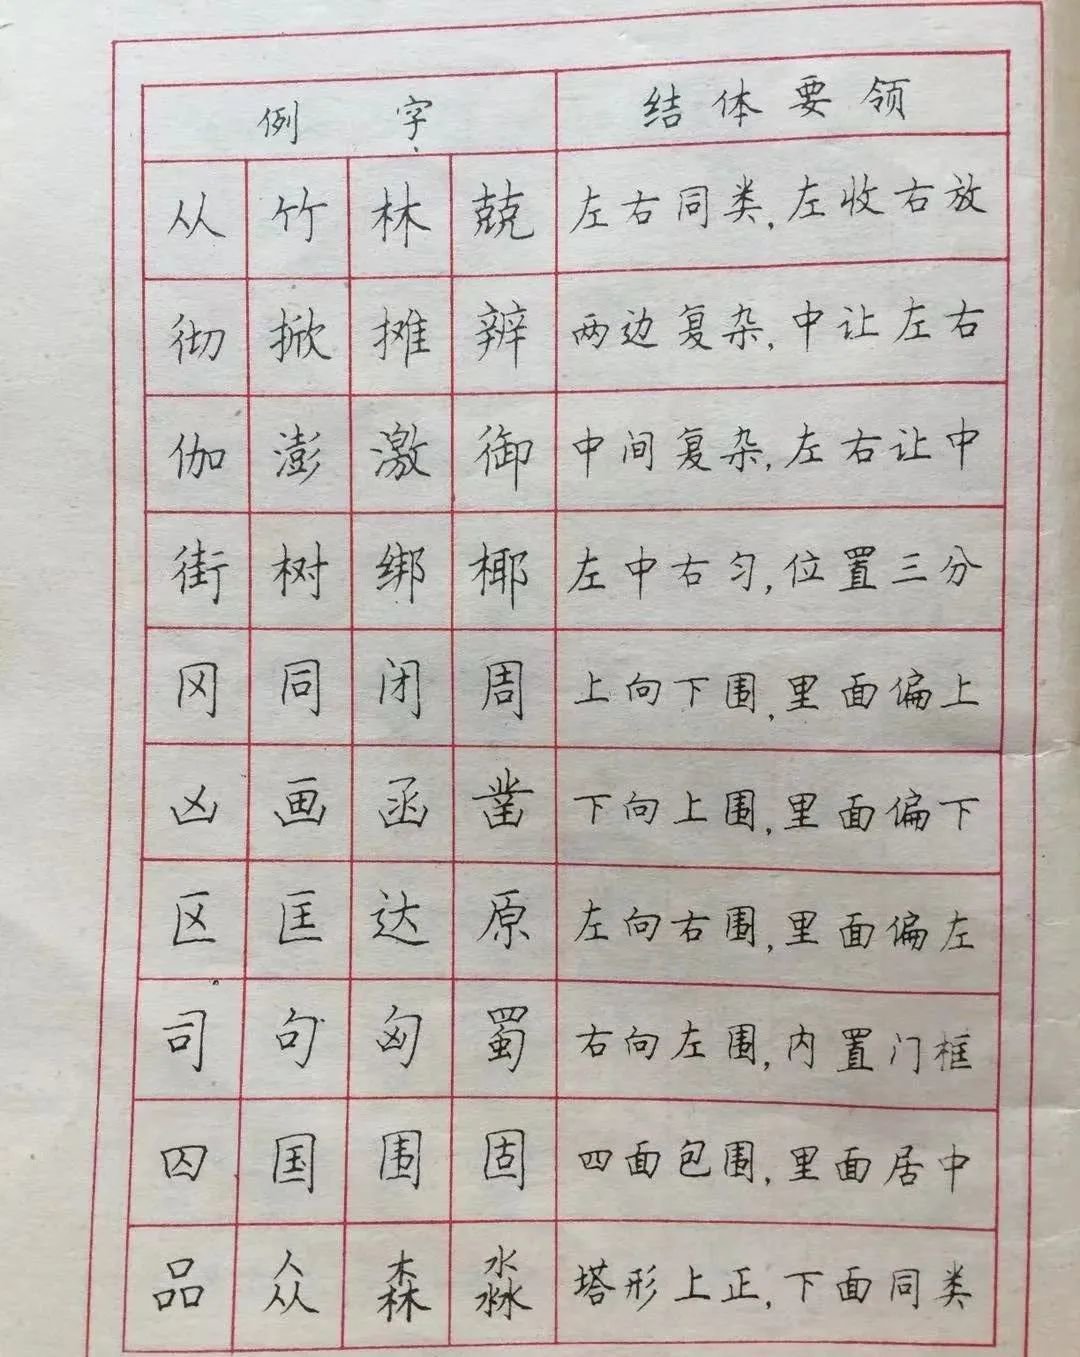 例字 结体要领
从 竹 林 兢 左右同类,左收右放
彻 掀 摊 辨 两边复杂,中让左右
伽 澎 激 御 中间复杂,左右让中
街 树 绑 椰 左中右匀,位置三分
冈 同 闭 周 上向下围,里面偏上
凶 画 函 凿 下向上围,里面偏下
区 匡 达 原 左向右围,里面偏左
司 句 匈 蜀 右向左围,内置门框
囚 国 围 固 四面包围,里面居中
品 众 森 淼 塔形上正,下面同类